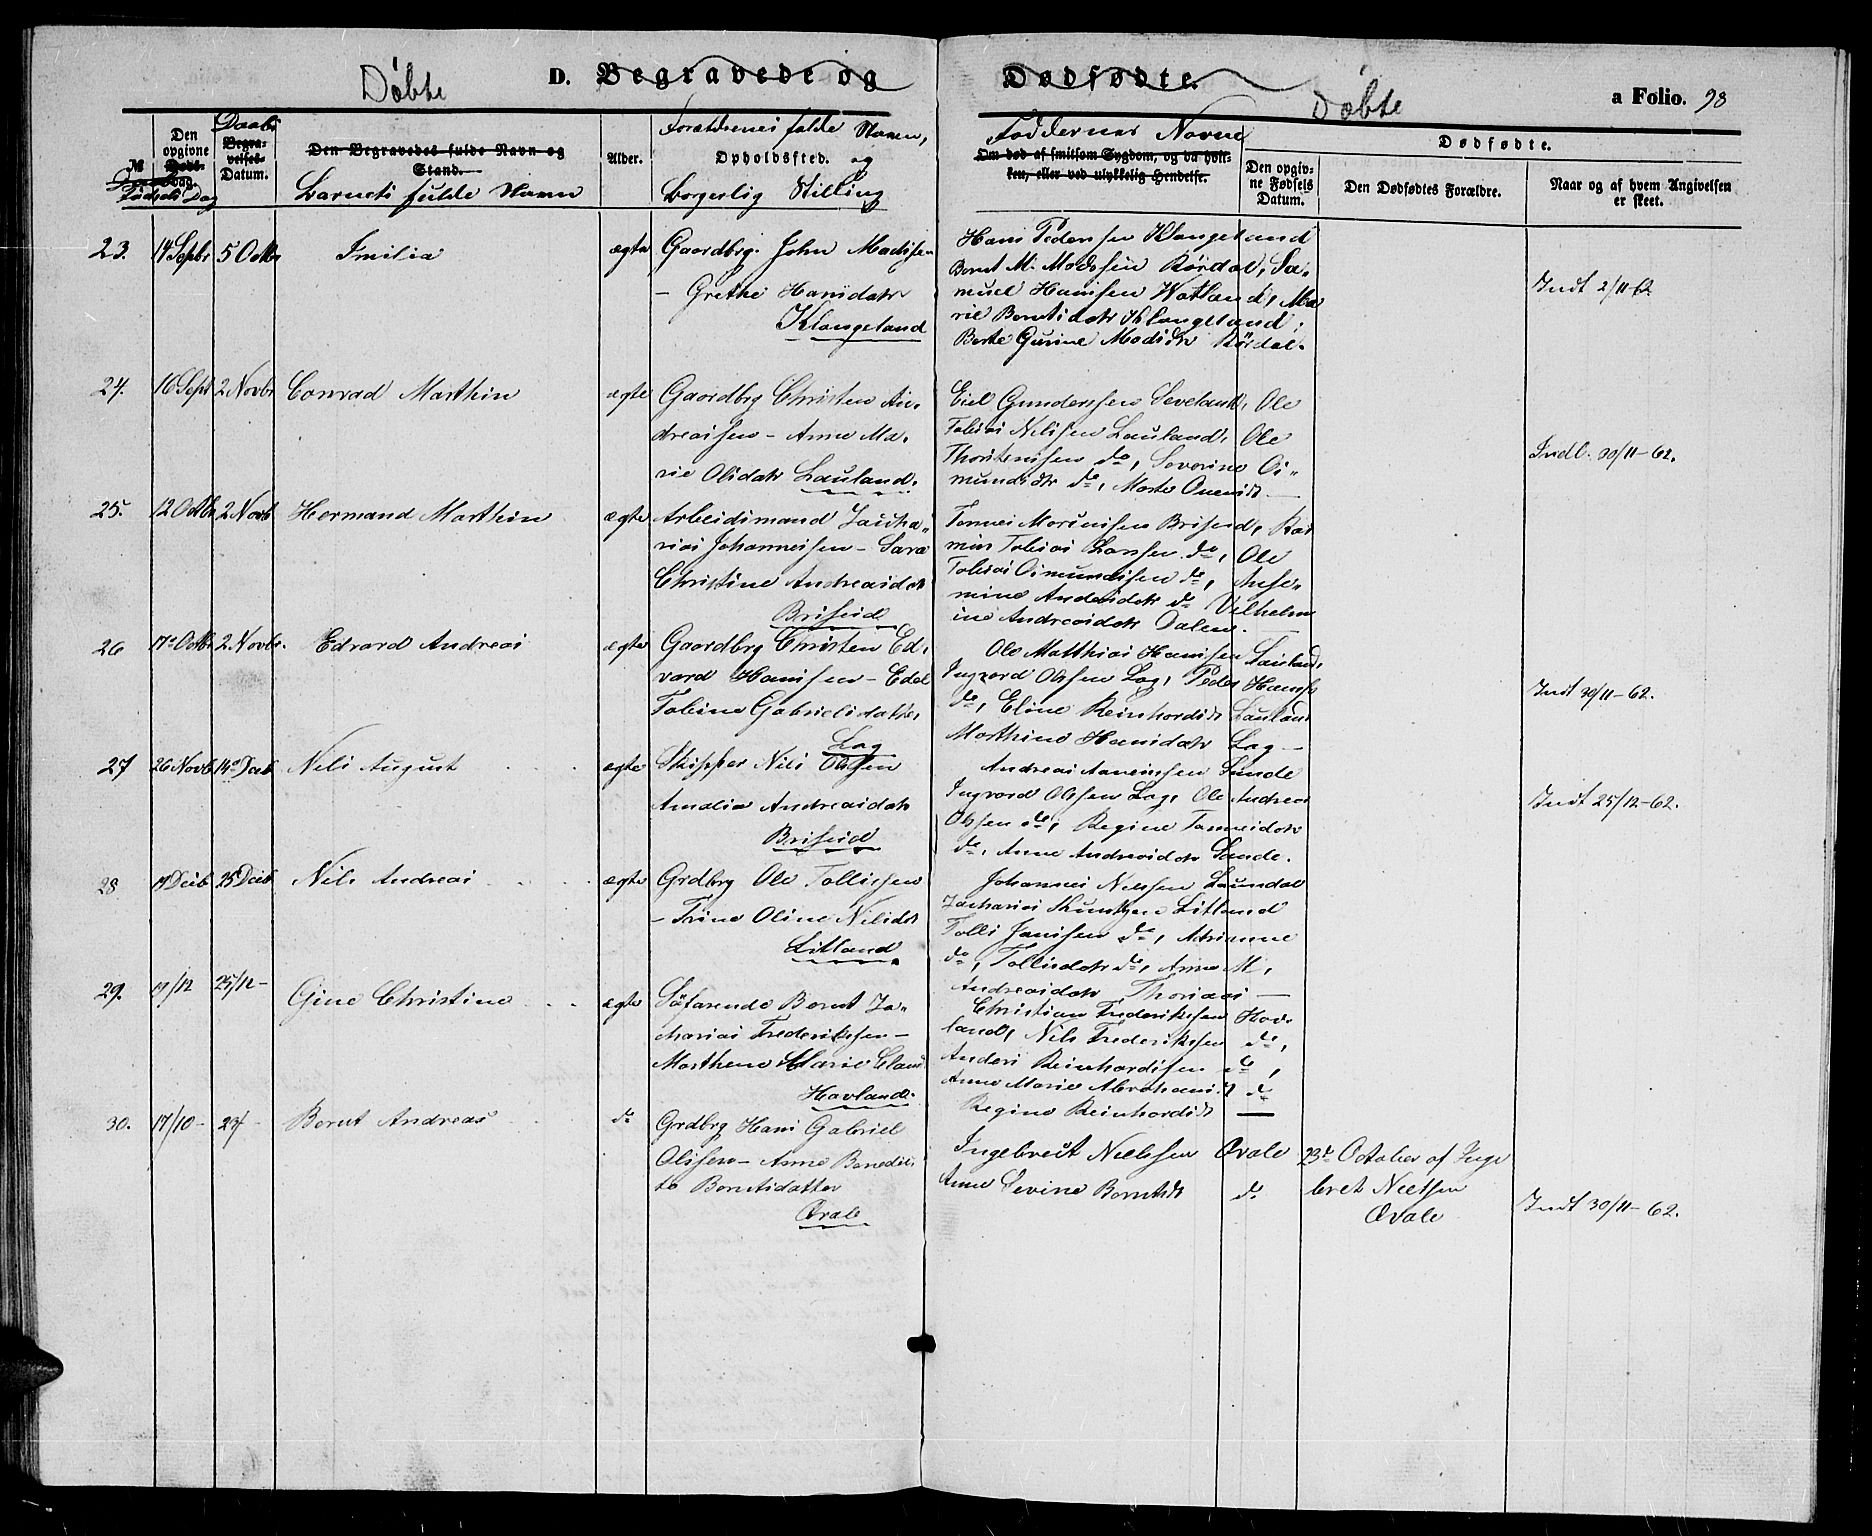 Døbte D. Begravede og Dødfødte. Døbte a Folio. 98
No Den opgivne Døds-Dag. Fødsels Dag
Daabs Begravelses-Datum.
Den Begravedes fulde Navn og Stand.
Barnets fulde Navn
Alder.
Forældrenes fulde Navn,
Opholdssted. og
borgerlig Stilling
Faddernes Navne
Om død af smitsom Sygdom, og da hvilken, eller ved ulykkelig Hendelse.
Dødfødte.
Den opgivne Fødsels Datum.
Den Dødfødtes Forældre.
Naar og af hvem Angivelsen er skeet.
23. 14 Septbr 5 Octbr Emilia ægte Gaardbrg. John Madssen
– Grethe Hansdatr
Klangeland
Hans Pedersen Klangeland
Bernt M. Madssen Rørdal, Sa-
muel Hanssen Watland, Ma
rie Berntsdatr Klangeland,
Berte Gurine Madsdtr Rørdal.
Indt 2/11-62
24. 16 Sept 2 Novbr Conrad Marthin ægte Gaardbrg Christen An-
dreassen – Anne Ma-
rie Olsdatr Lauland.
Eiel Gundersen Leveland, Ole
Tobias Nilssen Lauland, Ole
Thorstensen do, Severine Os-
mundsdtr do, Marte
Indb. 30/11-62.
25. 12 Octbr 2 Novb Hermand Marthin ægte Arbeidsmand Zacha-
rias Johannessen – Sara
Christine Andreasdatr
Briseid
Tønnes Briseid, Ras
mus Tobias Larssen do, Ole
Tobias Osmundssen do, Anse-
mine Andersdatr do Vilhelm
ine Andreasdatr Dalen.
26 17 Octbr 2. Novbr. Edvard Andreas ægte Gaardbrg Christen Ed-
vard Hanssen – Edel
Tobine Gabrielsdatter,
Lag
Ole Matthias Hanssen Lauland,
Ingvard Olssen Lag, Peder Hanss
do, Eline Reinhardsdt Lauland
Marthine Hansdatr Lag –
Indt 30/11-62.
27 26 Novb 14 Decb Nils August ægte Skipper Nils Olssen
Amalia Andreasdatr
Briseid
Andreas Aanensen Sunde
Ingvard Olssen Lag, Ole Andreas
Olssen do, Regine Tønnesdatr
do, Anne Andreasdatr Sande.
Indt 25/12-62.
28 19 Decb 25 Decb Nils Andreas ægte Grdbrg Ole Tollissen
– Trine Oline Nilsdt
Litland
Johannes Nilssen Laundal
Zacharias Litland
Tollis Janssen do, Adrianne
do, Tollisdatr do, Anne M.
Andreasdatr –
29. 9/12 25/12– Gine Christine ægte Søfarende Bernt Za-
charias Frederikssen –
Marthene Marie
Havland.
Christian Frederikssen Hov-
land, Nils Frederikssen do,
Anders Reinhardssen do,
Anne Marie Abrahamsdt do
Regine Reinhardsdt —
30. 17/10– 23/ Bernt Andreas do Grdbrg Hans Gabriel
Olssen – Anne Benedic
te Berntsdatter
Qvale
Ingebreit Neelssen Qvale
Anne Sevine Berntsdt do
23d October af Inge
bret Neelsen
Qvale
Indt 30/11-62.